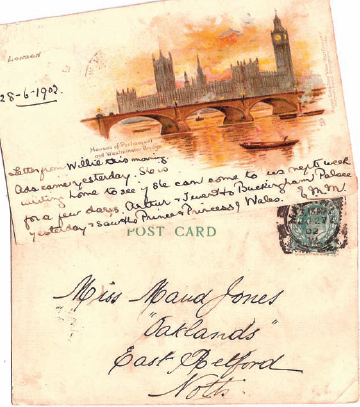 London
28-6-1902.
Houses of Parliament
and Westminster Bridge
Letter from Willie this morning
Ada came yesterday. She is
writing home to see if she can come to us next week
for a few days. Arthur & I went to Buckingham Palace
yesterday & saw the Prince & Princess of Wales. E.M.M.
POST CARD
Miss Maud Jones
"Oaklands"
East Retford
Notts.